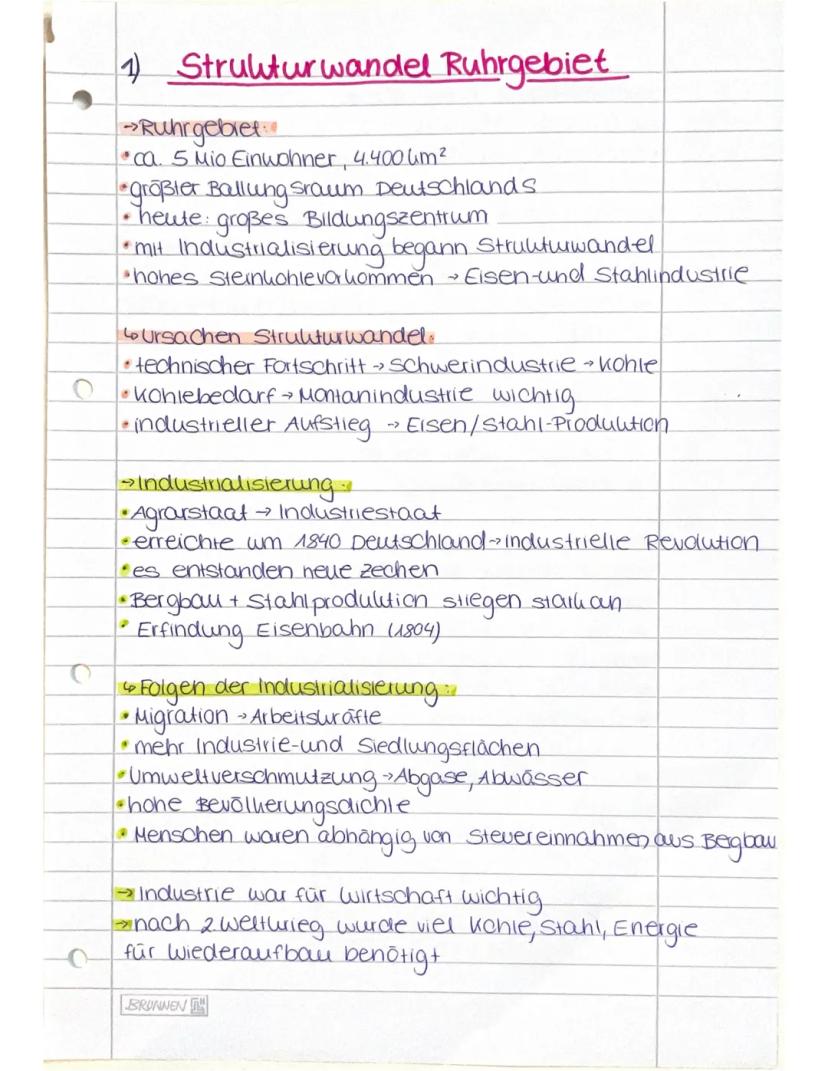 1) Strukturwandel Ruhrgebiet
→Ruhrgebiet:
• ca. 5 Mio Einwohner, 4.400 km²
• größter Ballungsraum Deutschlands
• heute: großes Bildungszentrum
• mit Industrialisierung begann Strukturwandel
• hohes Steinkohlevorkommen → Eisen-und Stahlindustrie
↳ Ursachen Strukturwandel:
• technischer Fortschritt → Schwerindustrie → Kohle
• Kohlebedarf → Montanindustrie wichtig
• industrieller Aufstieg → Eisen/Stahl-Produktion
→ Industrialisierung:
• Agrarstaat → Industriestaat
• erreichte um 1840 Deutschland → industrielle Revolution
• es entstanden neue Zechen
• Bergbau + Stahlproduktion stiegen stark an
• Erfindung Eisenbahn (1804)
↳ Folgen der Industrialisierung:
• Migration → Arbeitskräfte
• mehr Industrie-und Siedlungsflächen
• Umweltverschmutzung → Abgase, Abwässer
• hohe Bevölkerungsdichte
• Menschen waren abhängig von Steuereinnahmen aus Begbau
→ Industrie war für Wirtschaft wichtig
→ nach 2 Weltkrieg wurde viel Kohle, Stahl, Energie
für Wiederaufbau benötigt
BRUNNEN